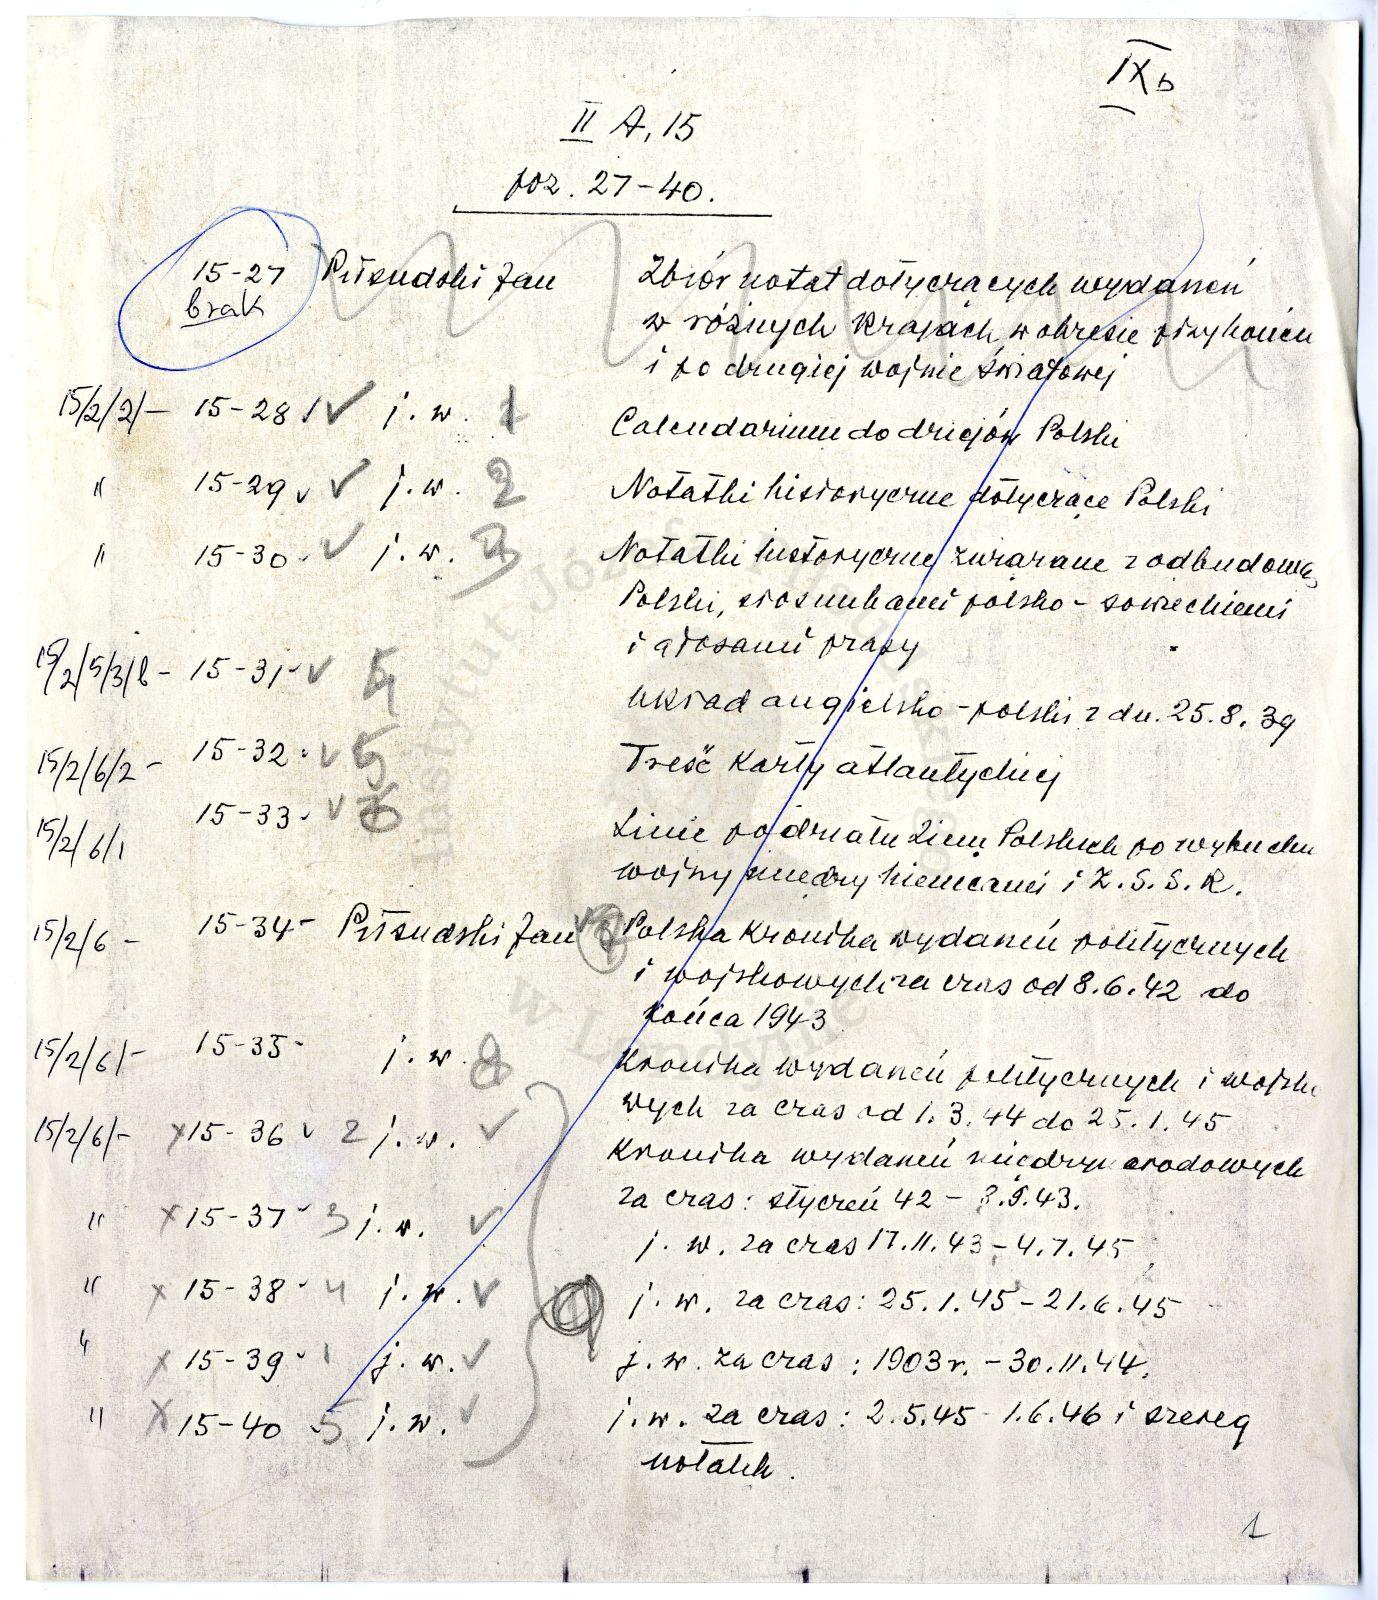 IXb
II A, 15
poz. 27-40.
15-27 Piłsudski Jan Zbiór notat dotyczących wydarzeń
brak w różnych krajach w okresie przy końcu
i po drugiej wojnie światowej
15/2/2/- 15-28 j. w. 1 Calendarium do dziejów Polski
" 15-29 j. w. 2 Notatki historyczne dotyczące Polski
" 15-30 j. w. 3 Notatki historyczne związane z odbudową
Polski, stosunkami polsko-sowieckiemi
i głosami prasy
15/2/5/3/b- 15-31 4 Układ angielsko-polski z dn. 25.8.39
15/2/6/2- 15-32 5 Treść Karty atlantyckiej
15/2/6/1 15-33 6 Linie podziału Ziem Polskich po wybuchu
wojny między Niemcami i Z.S.S.R.
15/2/6- 15-34- Piłsudski Jan Polska Kronika wydarzeń politycznych
i wojskowych za czas od 8.6.42 do
końca 1943
15/2/6/- 15-35- j. w. 8 Kronika wydarzeń politycznych i wojsko
wych za czas od 1.3.44 do 25.1.45
15/2/6/- x15-36 2 j. w. Kronika wydarzeń międzynarodowych
za czas: styczeń 42 -
" x15-37 3 j. w. j. w. za czas 17.11.43-4.7.45
" x 15-38 4 j. w. j. w. za czas: 25.1.45-21.6.45
" x 15-39 1 j. w. j. w. za czas: 1903r.-30.11.44.
" x 15-40 5 j. w. j. w. za czas: 2.5.45-1.6.46 i szereg
notatek.
1
Instytut Józefa Piłsudskiego
w Londynie